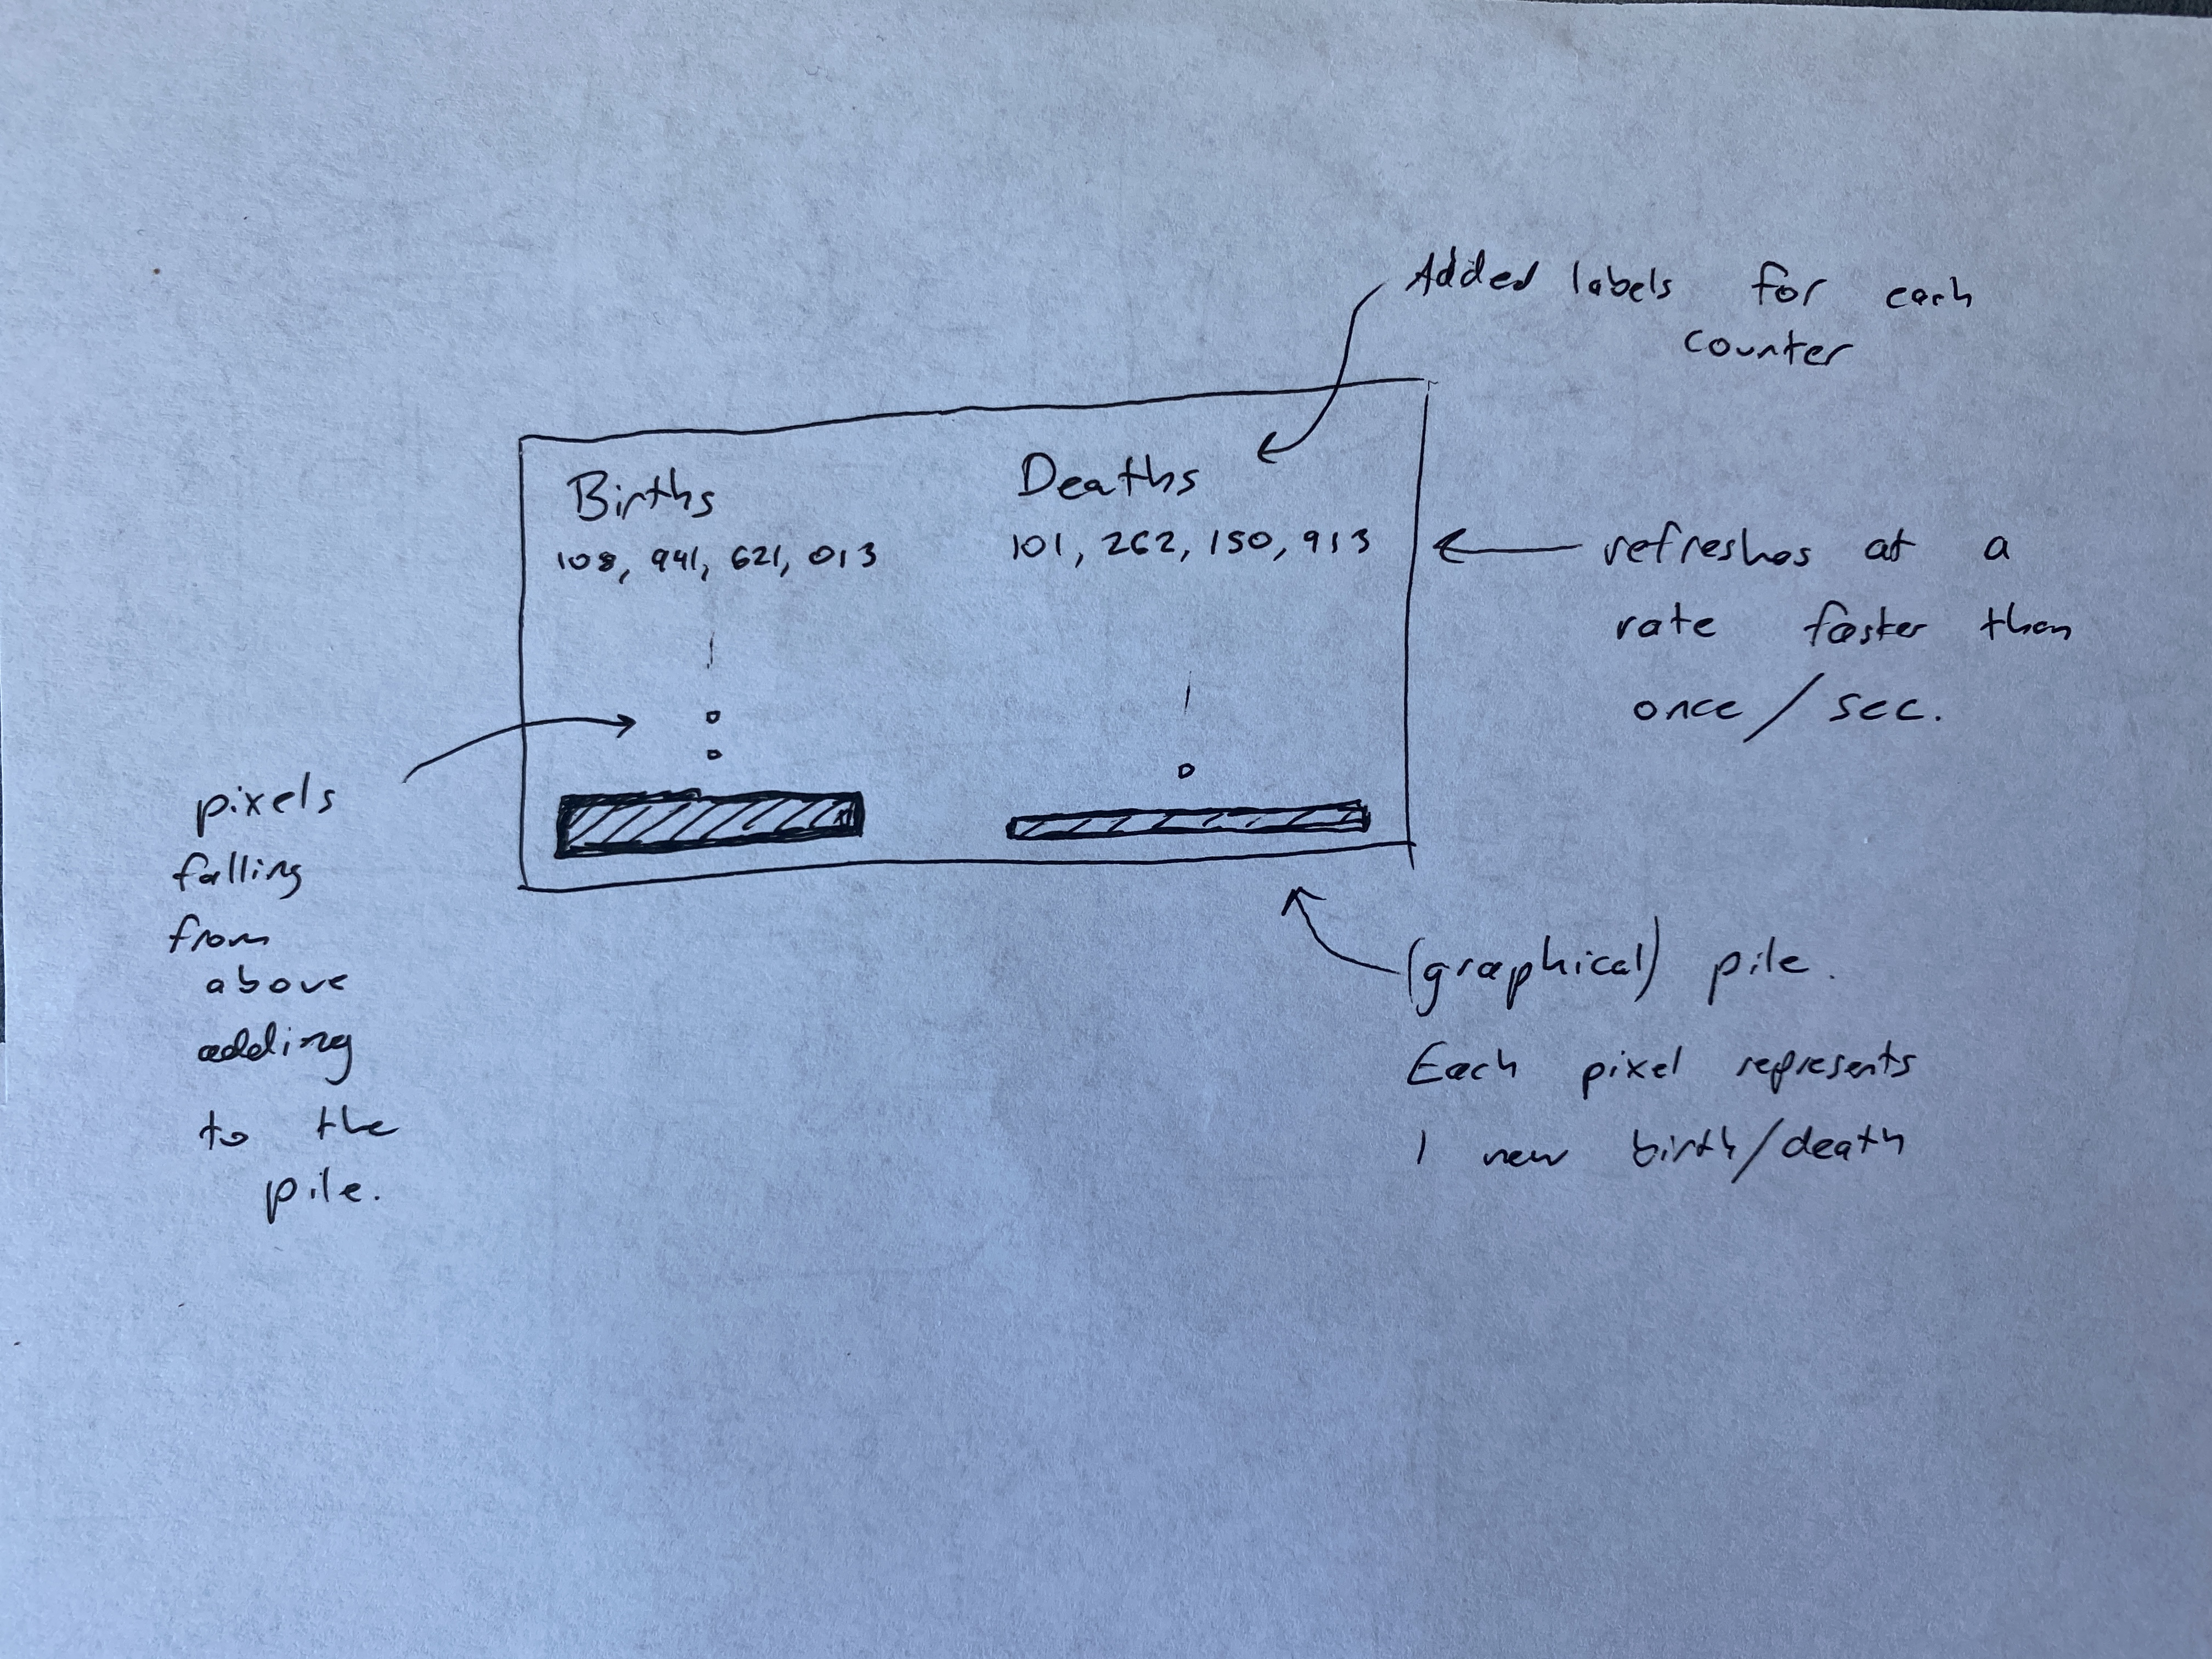 Added labels for each
counter
Births
Deaths
108, 941, 621, 013
101, 262, 150, 913
refreshes at a
rate faster than
once / sec.
pixels
falling
from
above
adding
to the
pile.
(graphical) pile.
Each pixel represents
1 new birth/death